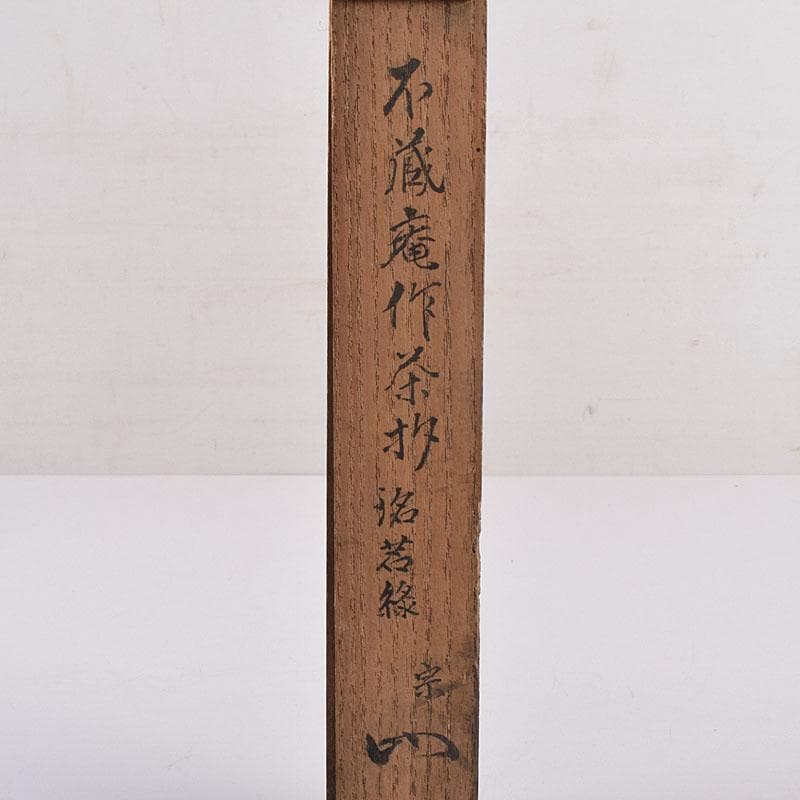 不蔵庵作茶杓
銘若緑
宗